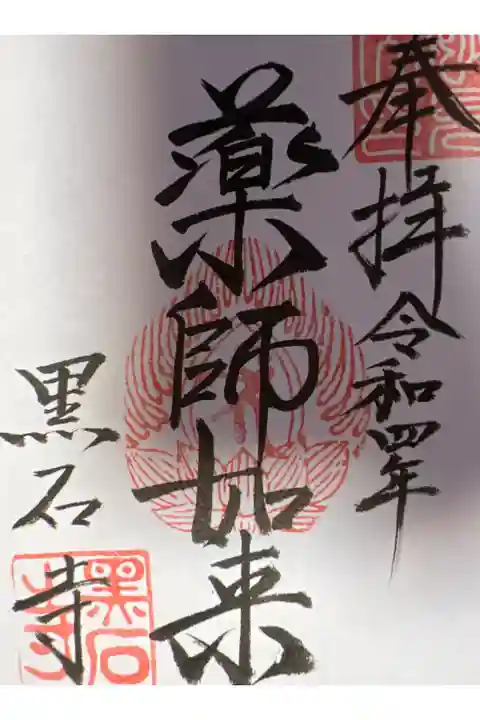 奉拝 令和四年
薬師如来
黒石寺
黒石
寺